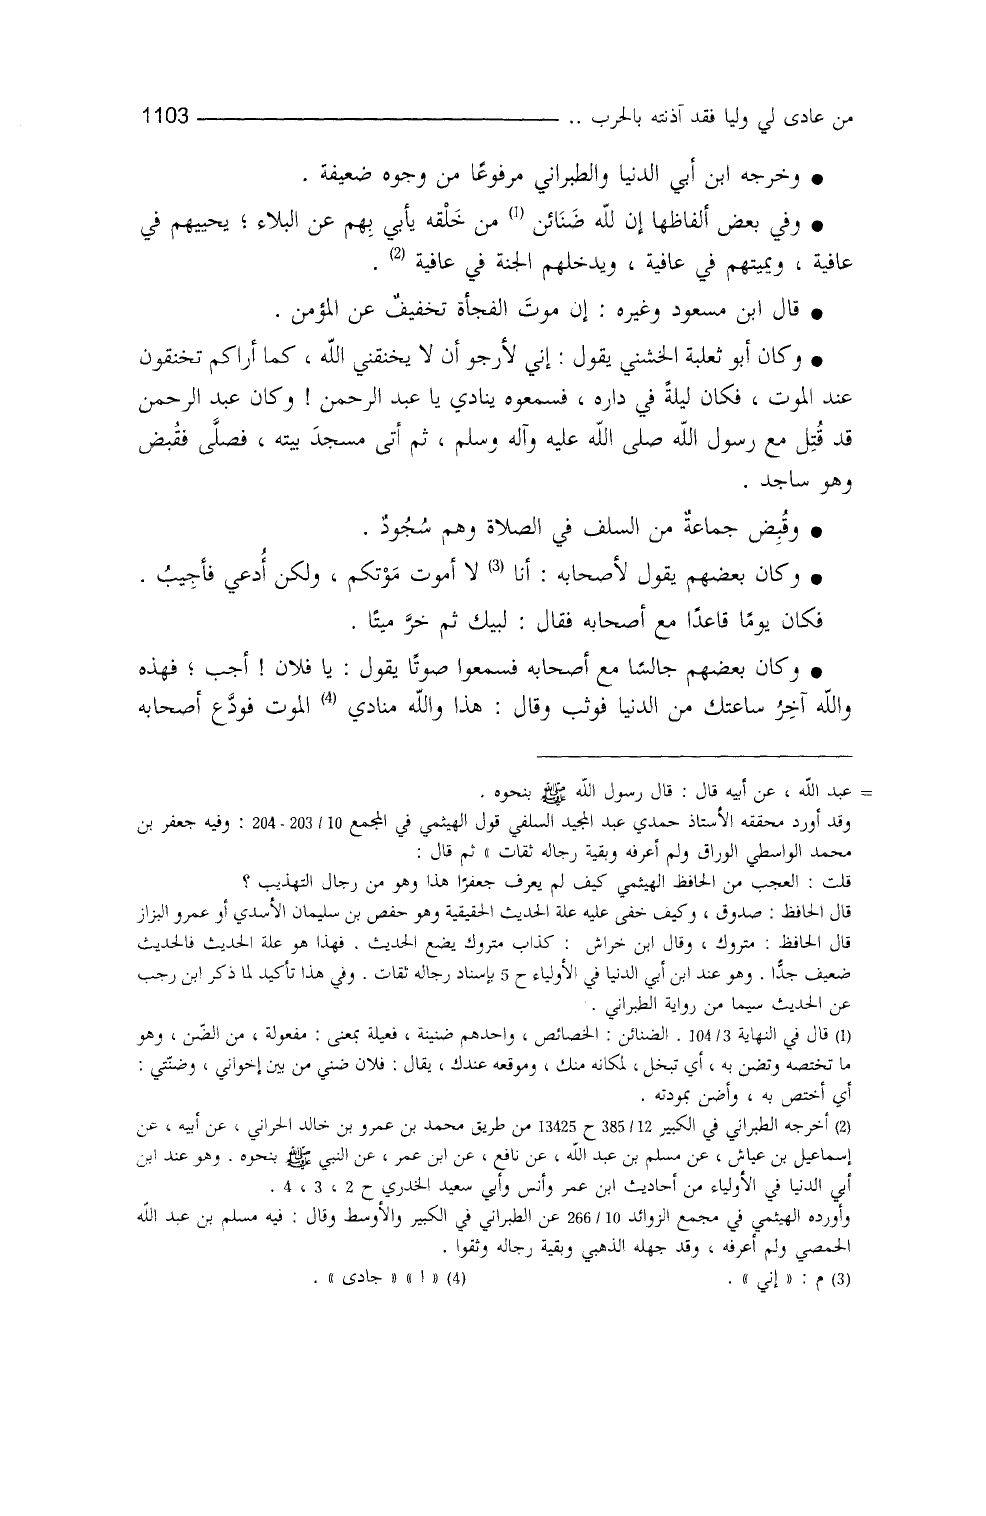 من عادى لي وليا فقد آذنته بالحرب .. 1103
● وخرجه ابن أبي الدنيا والطبراني مرفوعًا من وجوه ضعيفة .
● وفي بعض ألفاظها إن للّه ضَنَائن (1) من خَلْقه يأبي بِهم عن البلاء ؛ يحييهم في
عافية ، ويميتهم في عافية ، ويدخلهم الجنة في عافية (2) .
● قال ابن مسعود وغيره : إن موتَ الفجأة تخفيفٌ عن المؤمن .
● وكان أبو ثعلبة الخشني يقول : إني لأرجو أن لا يخنقني اللّه ، كما أراكم تخنقون
عند الموت ، فكان ليلةً في داره ، فسمعوه ينادي يا عبد الرحمن ! وكان عبد الرحمن
قد قُتِل مع رسول اللّه صلى اللّه عليه وآله وسلم ، ثم أتى مسجدَ بيته ، فصلَّى فقُبض
وهو ساجد .
● وقُبِض جماعةٌ من السلف في الصلاة وهم سُجُودٌ .
● وكان بعضهم يقول لأصحابه : أنا (3) لا أموت مَوْتكم ، ولكن أُدعي فأجِيبُ .
فكان يومًا قاعدًا مع أصحابه فقال : لبيك ثم خرَّ ميتًا .
● وكان بعضهم جالسًا مع أصحابه فسمعوا صوتًا يقول : يا فلان ! أجب ؛ فهذه
واللّه آخِرُ ساعتك من الدنيا فوثب وقال : هذا واللّه منادي (4) الموت فودَّع أصحابه
= عبد اللّه ، عن أبيه قال : قال رسول اللّه ﷺ بنحوه .
وقد أورد محققه الأستاذ حمدي عبد المجيد السلفي قول الهيثمي في المجمع 10 / 203 - 204 : وفيه جعفر بن
محمد الواسطي الوراق ولم أعرفه وبقية رجاله ثقات » ثم قال :
قلت : العجب من الحافظ الهيثمي كيف لم يعرف جعفرًا هذا وهو من رجال التهذيب ؟
قال الحافظ : صدوق ، وكيف خفى عليه علة الحديث الحقيقية وهو حفص بن سليمان الأسدي أو عمرو البزاز
قال الحافظ : متروك ، وقال ابن خراش : كذاب متروك يضع الحديث . فهذا هو علة الحديث فالحديث
ضعيف جدًّا . وهو عند ابن أبي الدنيا في الأولياء ح 5 بإسناد رجاله ثقات . وفي هذا تأكيد لما ذكر ابن رجب
عن الحديث سيما من رواية الطبراني .
(1) قال في النهاية 3 / 104 . الضنائن : الخصائص ، واحدهم ضنينة ، فعيلة بمعنى : مفعولة ، من الضّن ، وهو
ما تختصه وتضن به ، أي تبخل ، لمكانه منك ، وموقعه عندك ، يقال : فلان ضني من بين إخواني ، وضنّتي :
أي أختص به ، وأضن بمودته .
(2) أخرجه الطبراني في الكبير 12 / 385 ح 13425 من طريق محمد بن عمرو بن خالد الحراني ، عن أبيه ، عن
إسماعيل بن عياش ، عن مسلم بن عبد اللّه ، عن نافع ، عن ابن عمر ، عن النبي ﷺ بنحوه . وهو عند ابن
أبي الدنيا في الأولياء من أحاديث ابن عمر وأنس وأبي سعيد الخدري ح 2 ، 3 ، 4 .
وأورده الهيثمي في مجمع الزوائد 10 / 266 عن الطبراني في الكبير والأوسط وقال : فيه مسلم بن عبد اللّه
الحمصي ولم أعرفه ، وقد جهله الذهبي وبقية رجاله وثقوا .
(3) م : « إني » . (4) « ا » « جادى » .